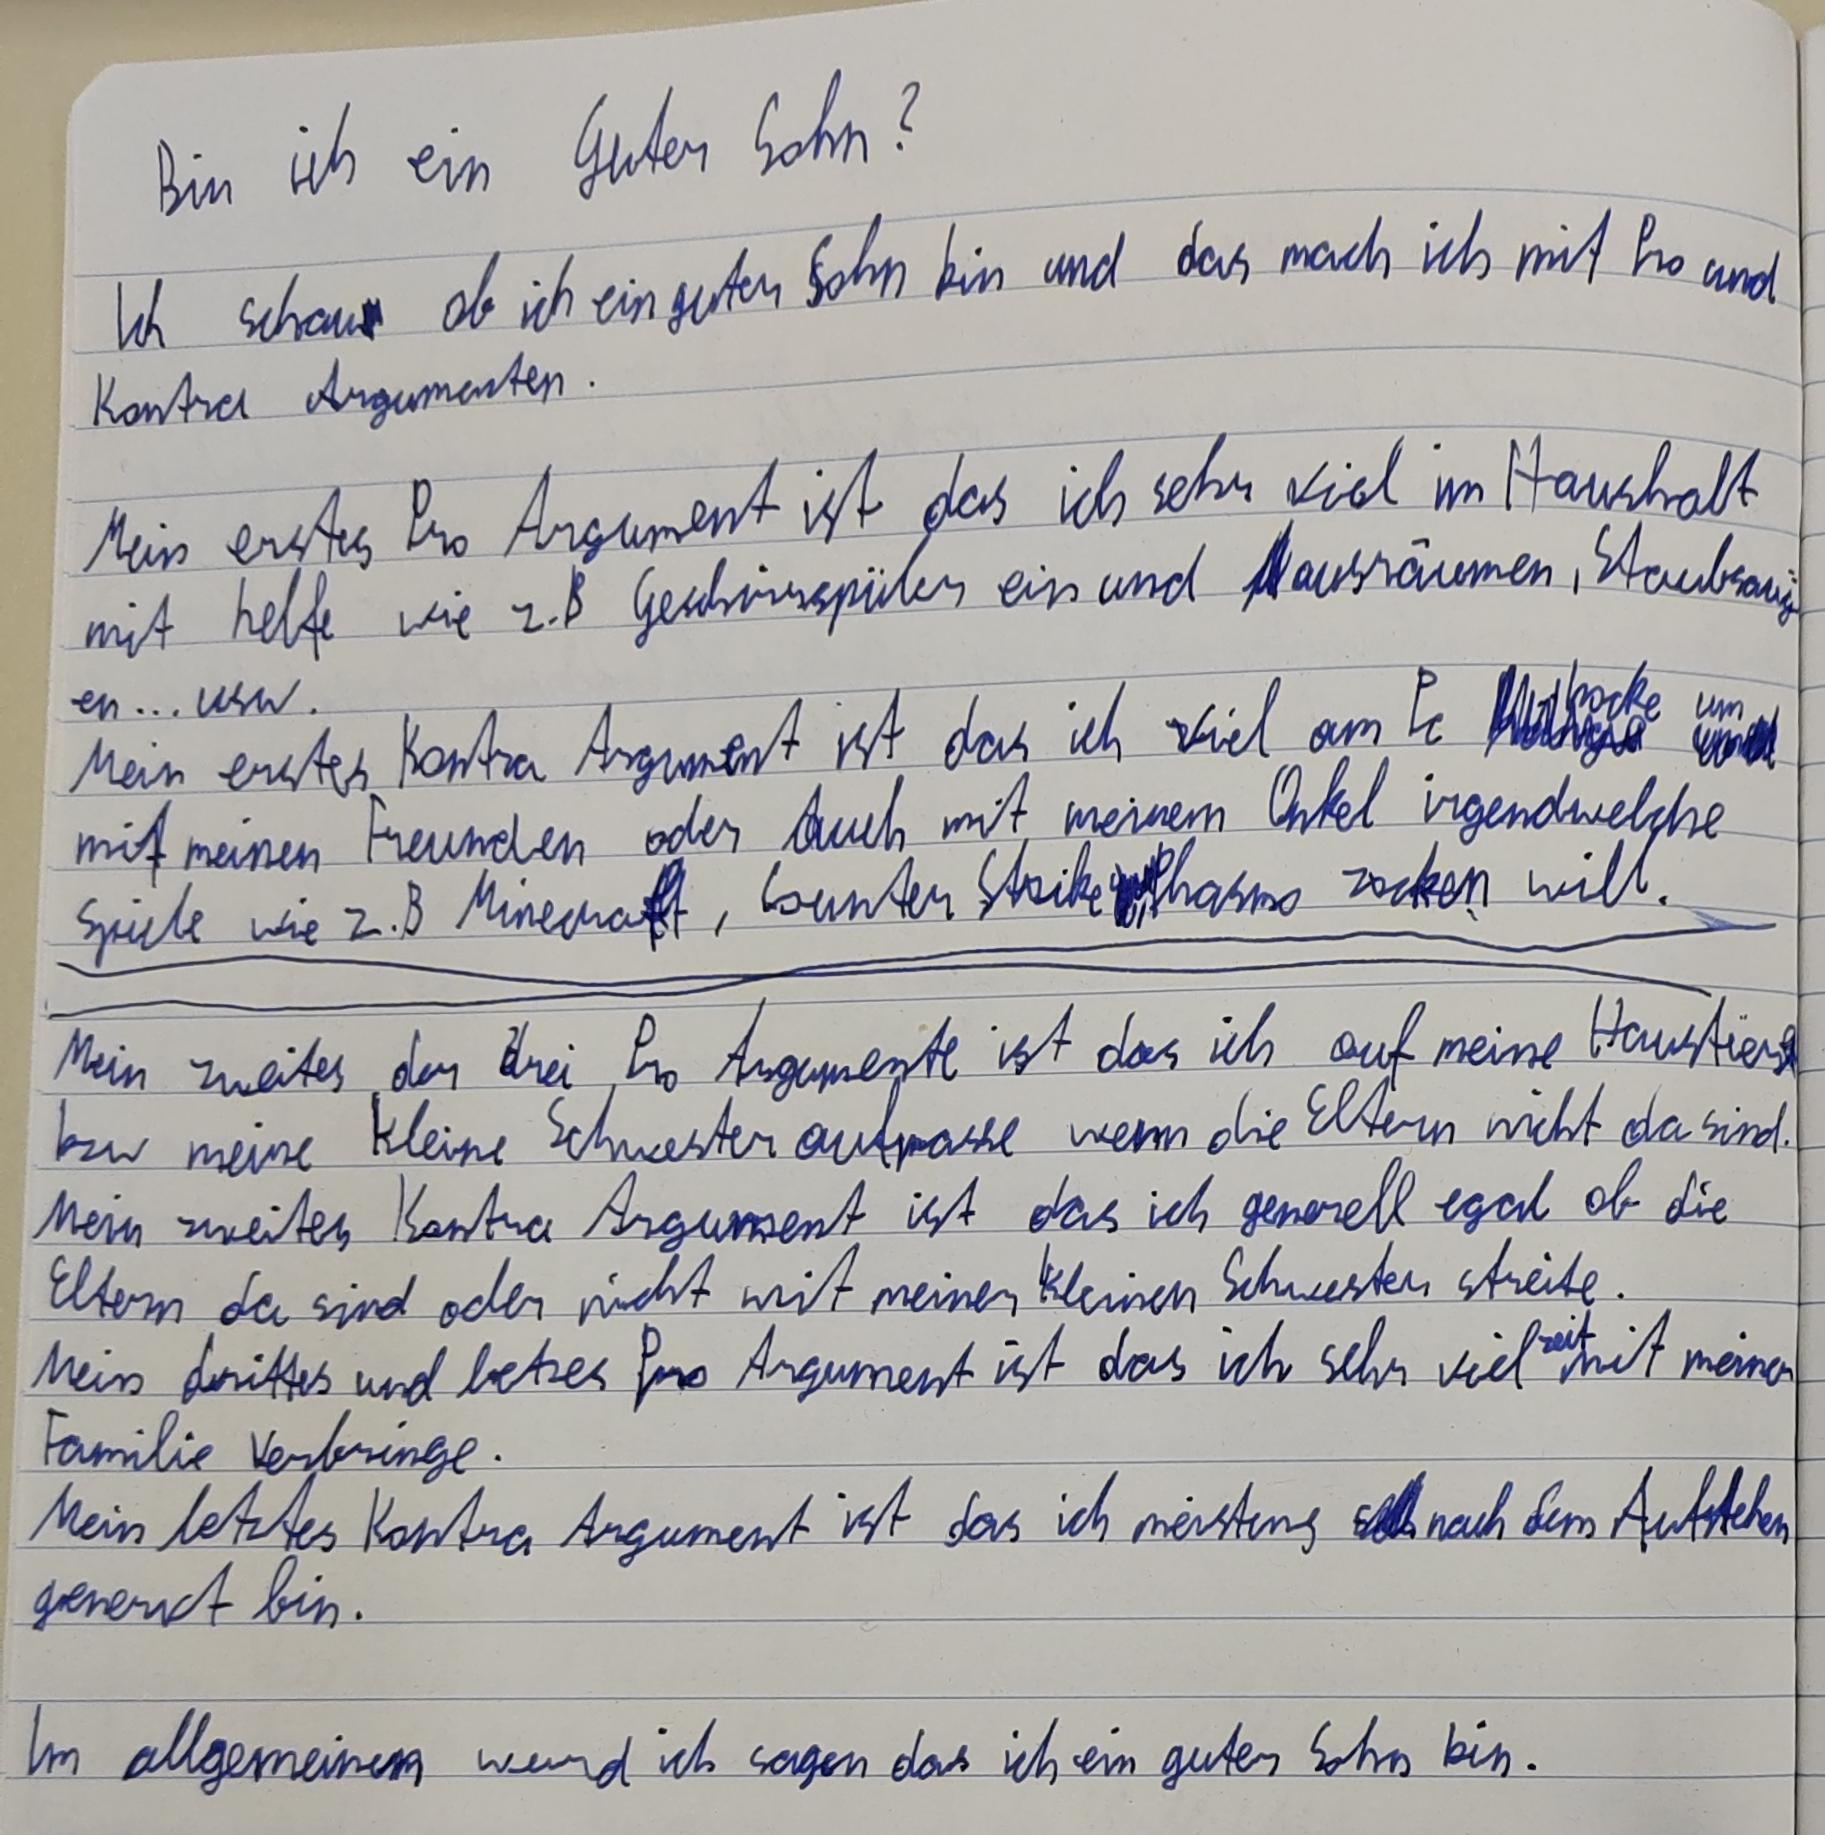 Bin ich ein Guter Sohn?
Ich schau ob ich ein guter Sohn bin und das mach ich mit Pro und
Kontra Argumenten.
Mein erstes Pro Argument ist das ich sehr viel im Haushalt
mit helfe wie z.B Geschirrspüler ein und ausräumen, Staubsaug
en... usw.
Mein erstes Kontra Argument ist das ich viel am Pc hocke um
mit meinen Freunden oder Auch mit meinem Onkel irgendwelche
Spiele wie z.B Minecraft, Counter Strike, Phasmo zocken will.
Mein zweites der drei Pro Argumente ist das ich auf meine Haustiere
bzw meine kleine Schwester aufpasse wenn die Eltern nicht da sind.
Mein zweites Kontra Argument ist das ich generell egal ob die
Eltern da sind oder nicht mit meiner kleinen Schwester streite.
Mein drittes und letzes Pro Argument ist das ich sehr viel zeit mit meiner
Familie Verbringe.
Mein letztes Kontra Argument ist das ich meistens nach dem Aufstehen
genervt bin.
Im allgemeinen würd ich sagen das ich ein guter Sohn bin.